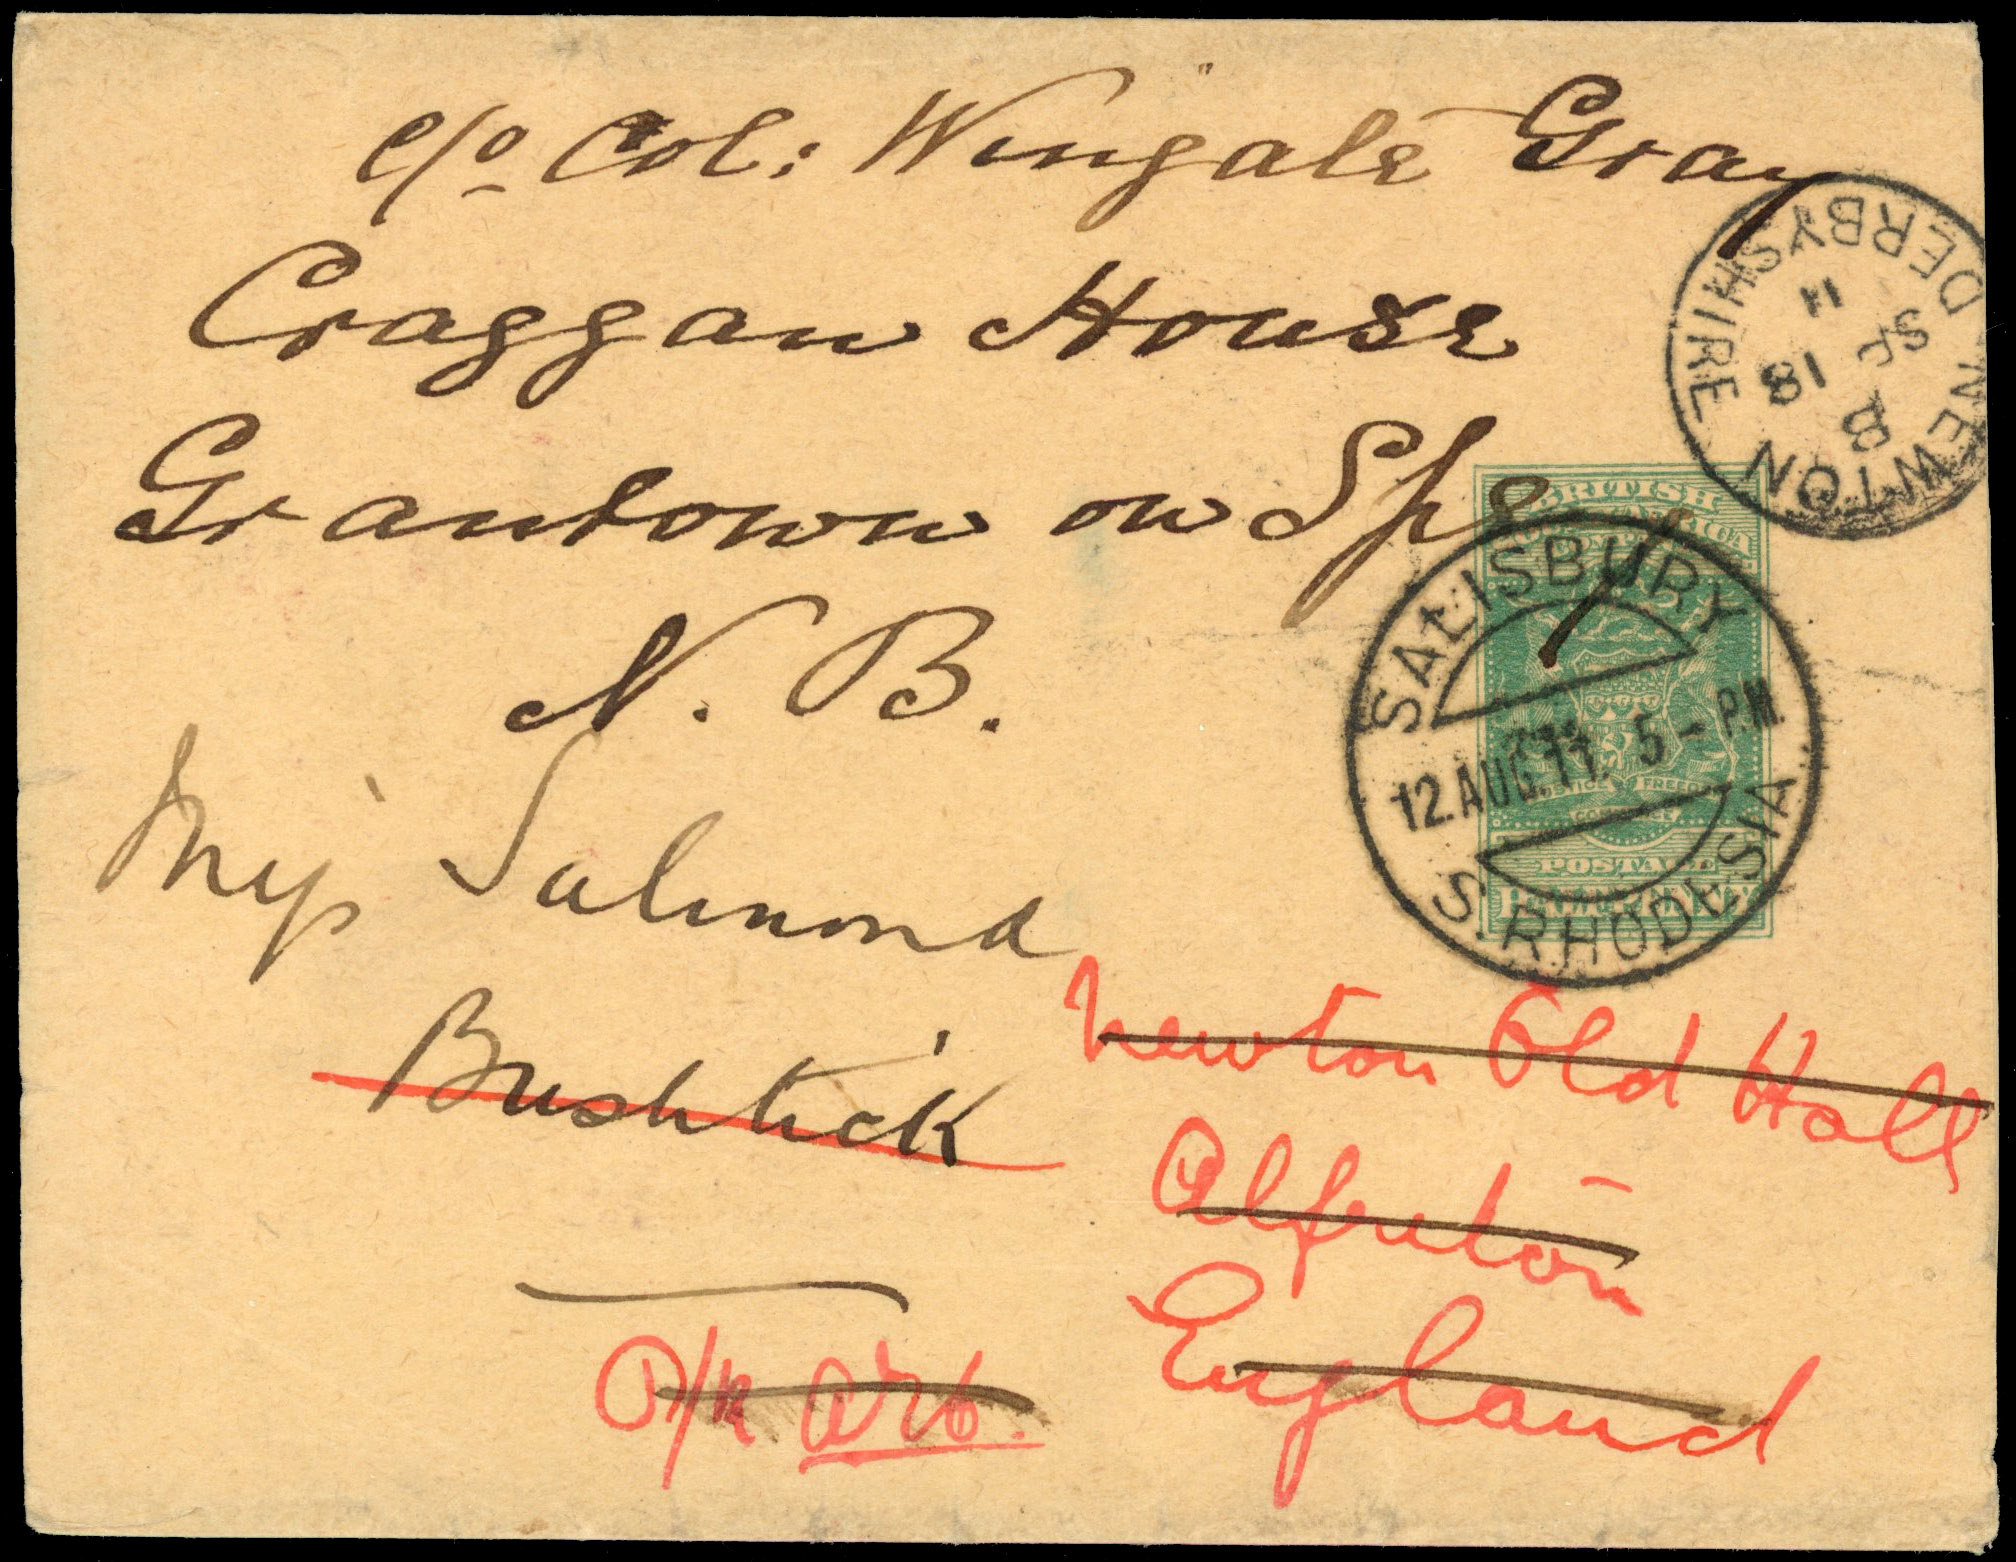 c/o Col: Wingate Gray
Craggan House
Grantown on Spey
N. B.
Miss Salmond
Bushtick
Newton Old Hall
Alfreton
England
NEWTON
DERBYSHIRE
SP 18
11
BRITISH
SOUTH AFRICA
COMPANY
JUSTICE FREEDOM
COMMERCE
POSTAGE
HALFPENNY
SALISBURY
12.AUG.11. 5 - P.M.
S. RHODESIA